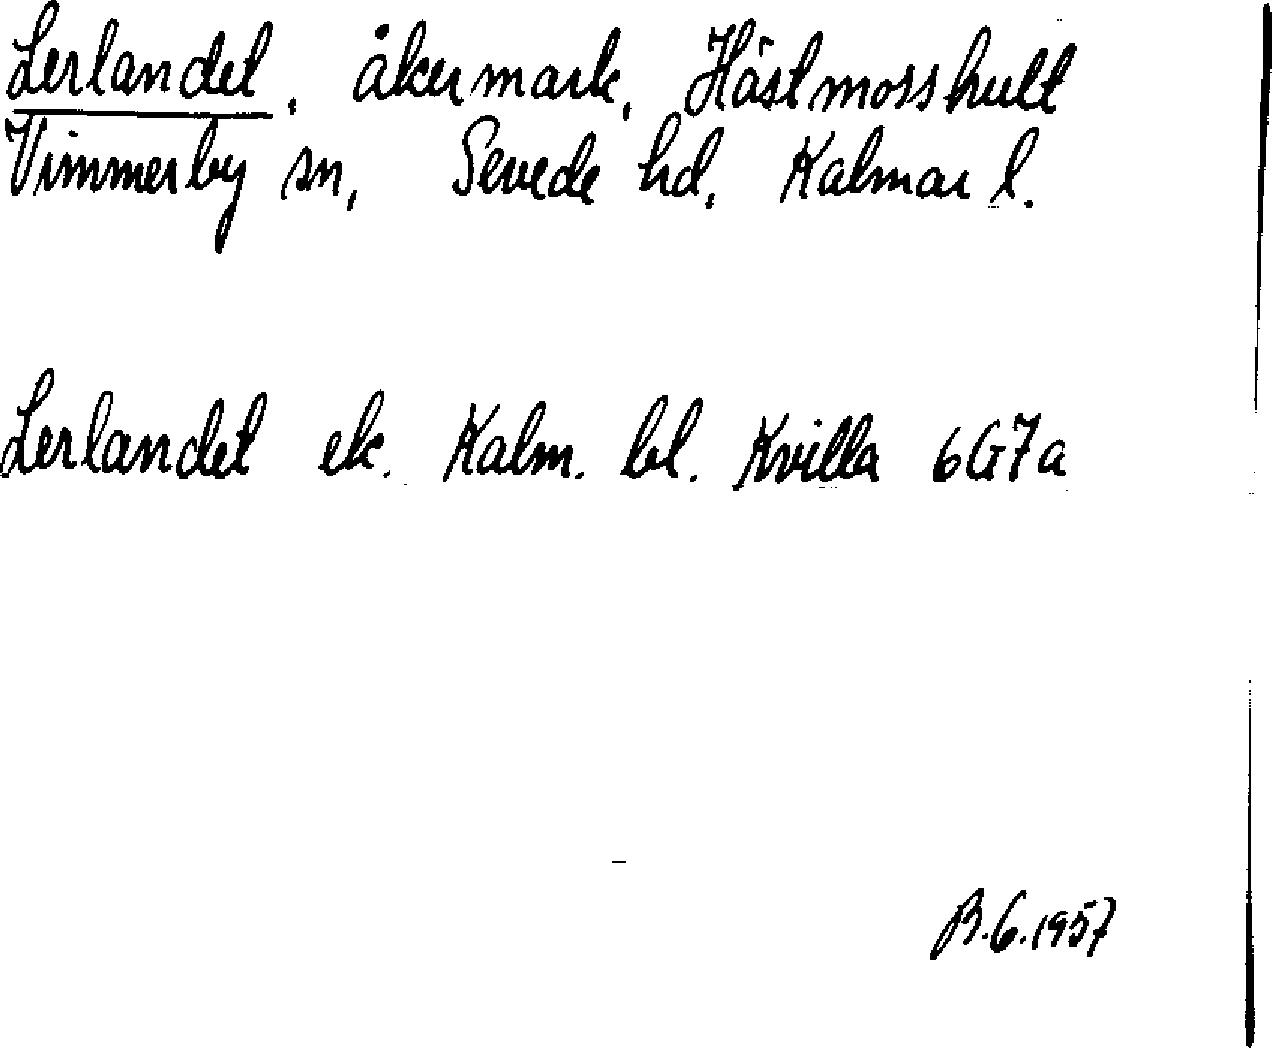 Lerlandet, åkermark, Hästmosshult
Vimmerby sn, Sevede hd, Kalmar l.
Lerlandet ek. Kalm. bl. Kvilla 6G7a
B.G. 1957